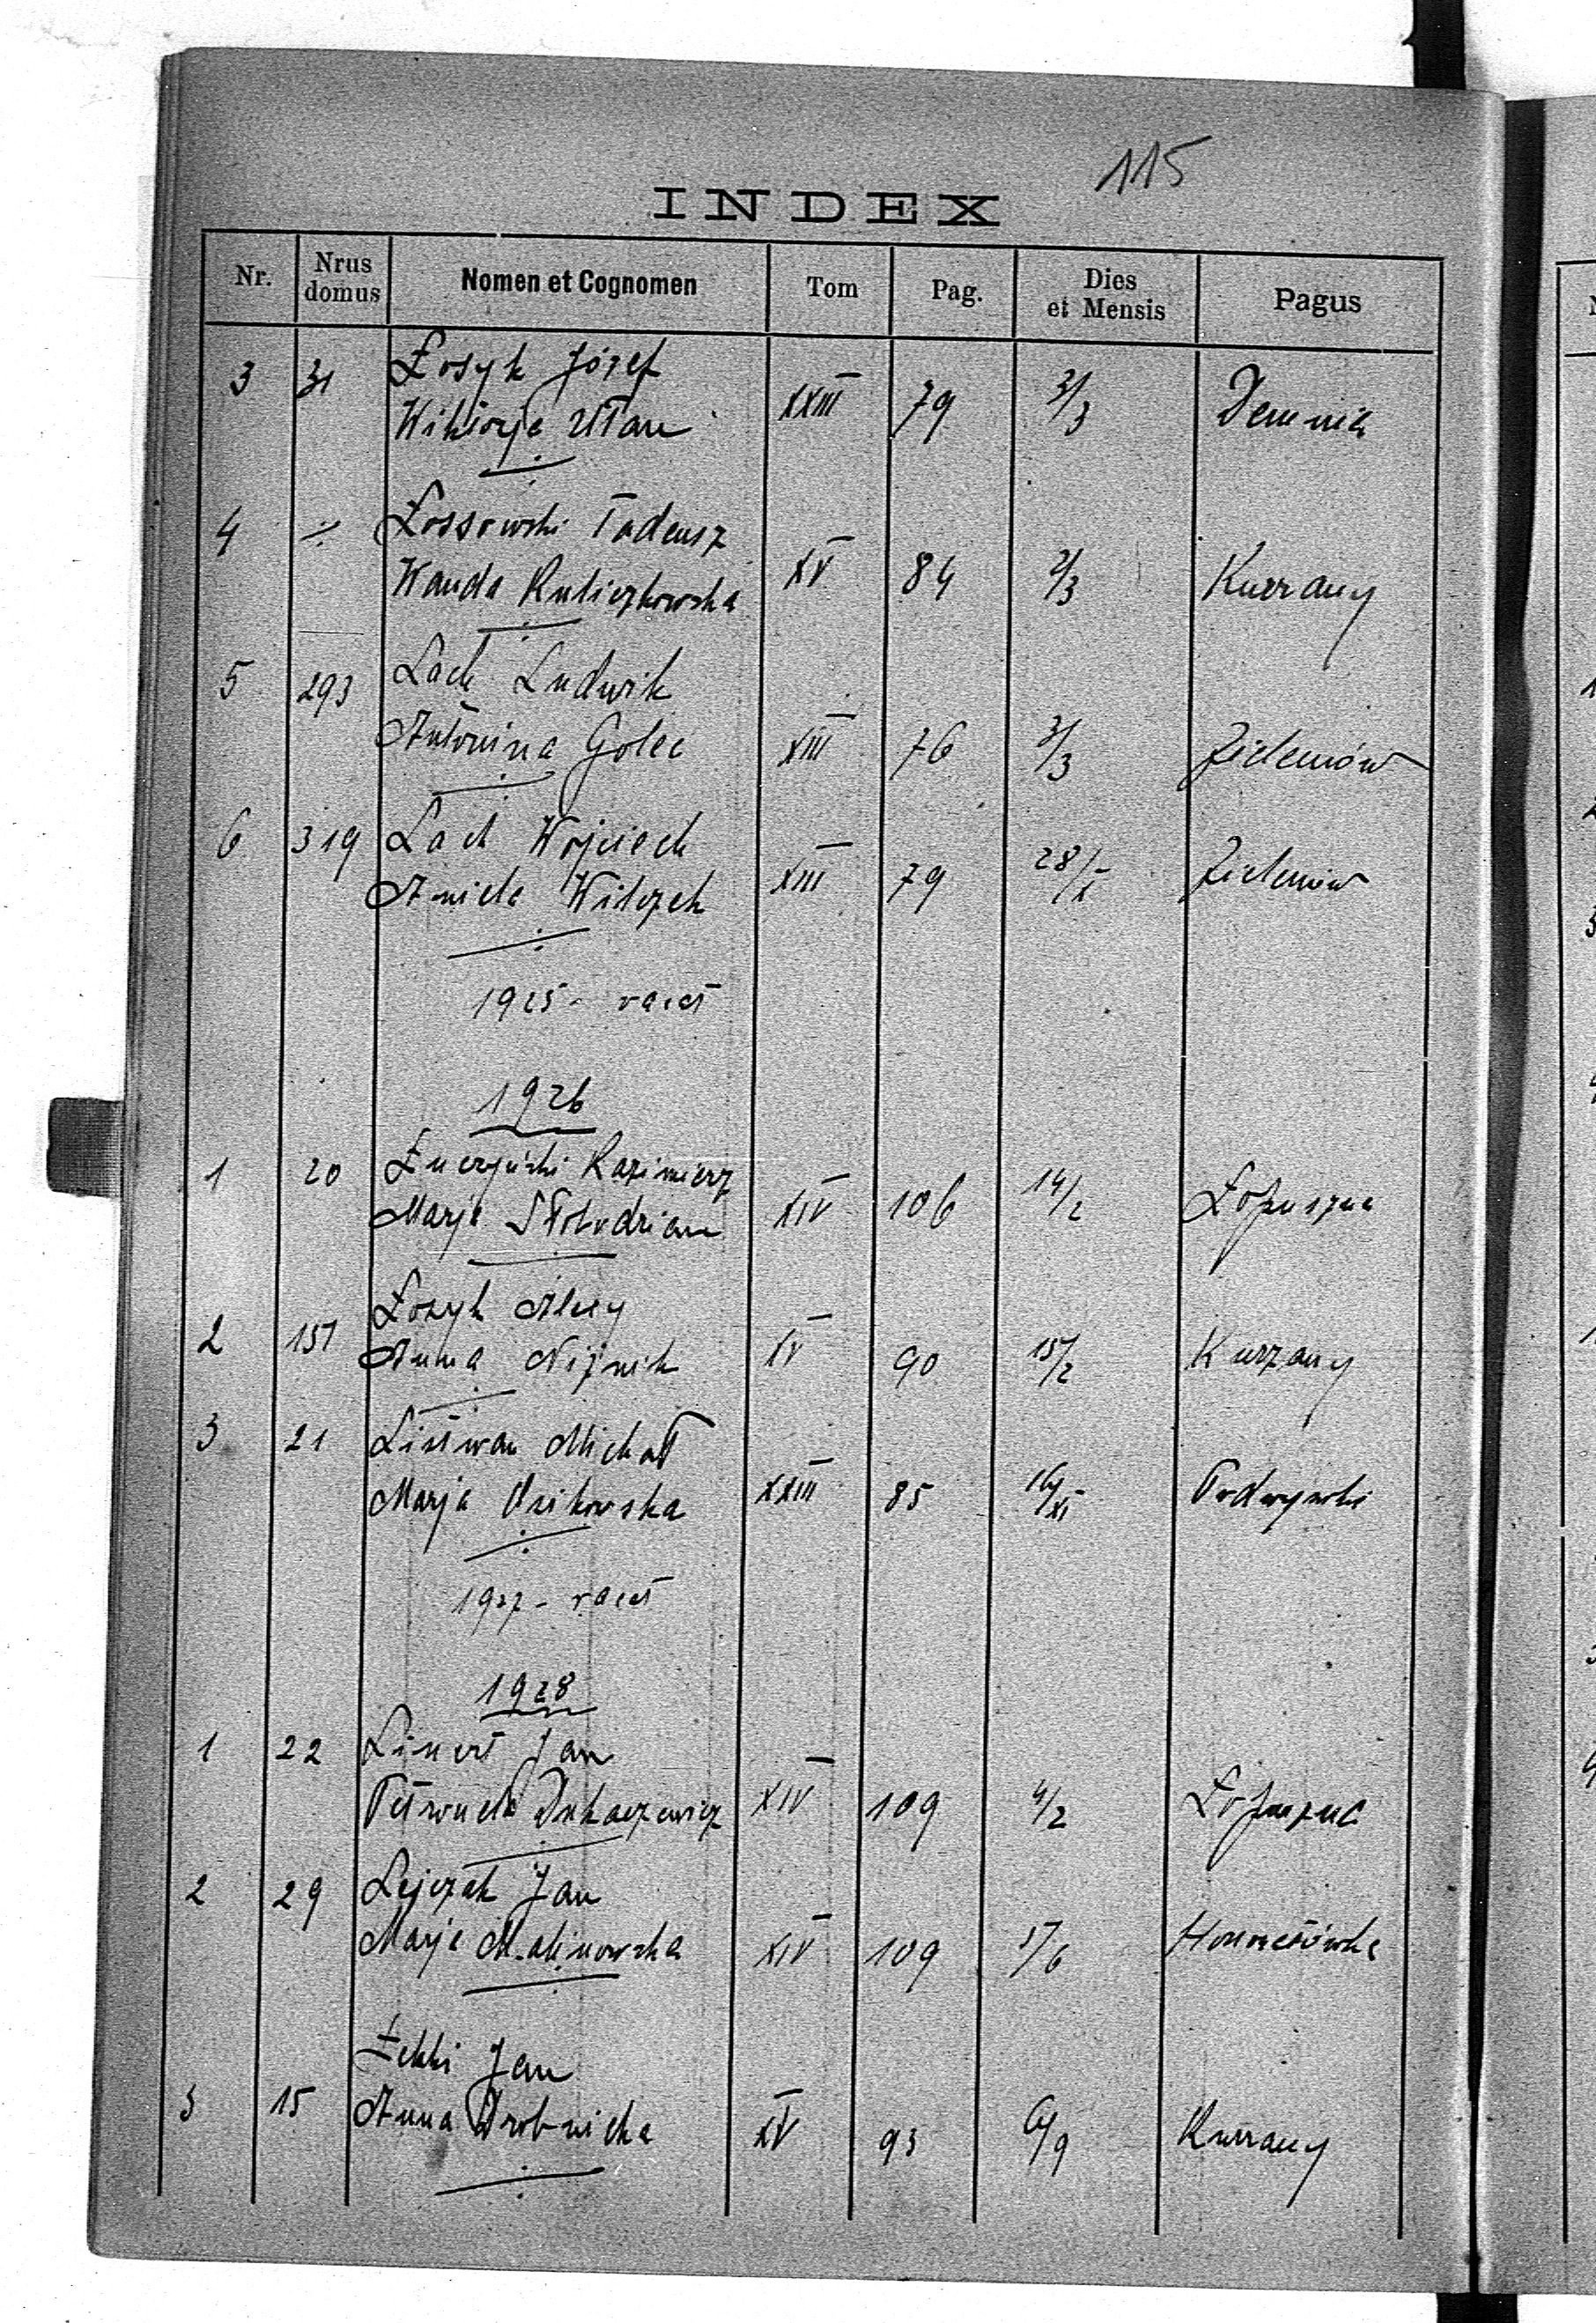 115
INDEX
Nr. Nrus domus Nomen et Cognomen Tom Pag. Dies et Mensis Pagus
3 31 Łosyk Józef
Wiktorja Ułan XXIII 79 3/3 Demnia
4 ·/. Łossowski Tadeusz
Wanda XV 84 2/3 Kurzany
5 293 Lach Ludwik
Antonina Golec XIII 76 3/3
6 319 Lach Wojciech
Aniela Wilczek XIII 79 28/X
1925 - vacat
1926
1 20 Kazimierz
Marja XIV 106 14/2 Łopuszna
2 157 Łosyk
Anna XV 90 15/2 Kurzany
3 21 Listwan Michał
Marja XXIII 85 /XI
1927 - vacat
1928
1 22 Linert Jan
XIV 109 4/2 Łopuszna
2 29 Lejczak Jan
Marja Malinowska XIV 109 17/6
Łekki Jan
3 15 Anna Drobnicka XV 93 9/9 Kurzany